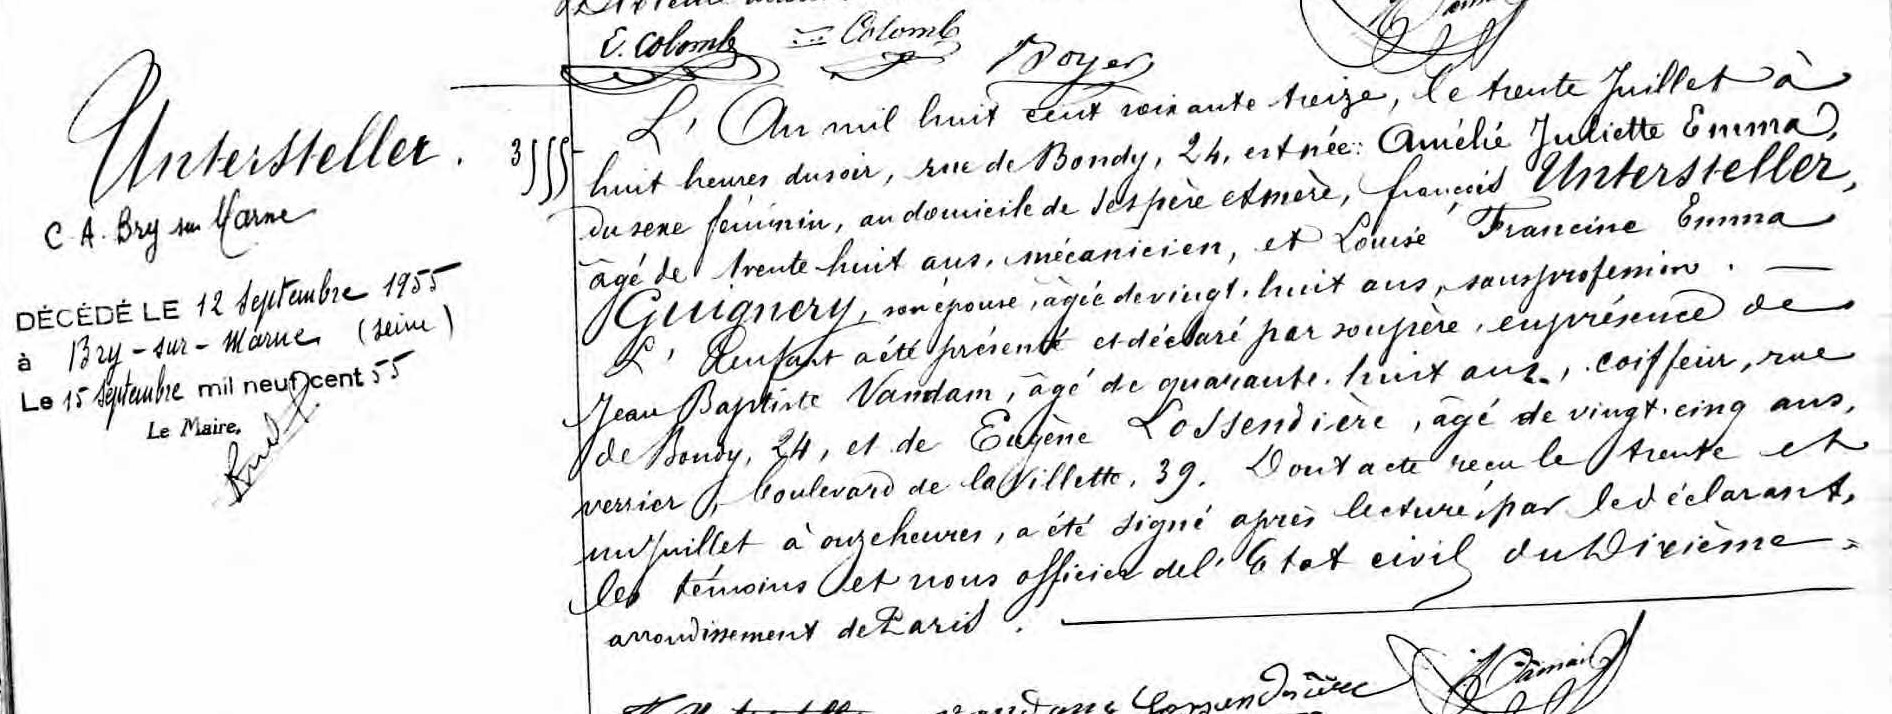 E. Colomb Colomb
Boyer
L'An mil huit cent soixante treize, le trente Juillet à
Untersteller.
3555
huit heures du soir, rue de Bondy, 24, est née: Amélie Juliette Emma,
du sexe féminin, au domicile de ses père et mère, françois Untersteller,
C. A. Bry sur Marne
âgé de trente huit ans, mécanicien, et Louise Francine Emma
Guignery, son épouse, âgée de vingt-huit ans, sans profession. —
DÉCÉDÉ LE 12 Septembre 1955
à Bry-sur-Marne (Seine)
Le 15 Septembre mil neuf cent 55
Le Maire,
L'Enfant a été présenté et déclaré par son père, en présence de
Jean Baptiste Vandam, âgé de quarante-huit ans, coiffeur, rue
de Bondy, 24, et de Eugène Lossendière, âgé de vingt-cinq ans,
verrier, boulevard de la Villette, 39. Dont acte reçu le trente et
un Juillet à onze heures, a été signé après lecture, par le déclarant,
les témoins et nous officier de l'Etat civil du Dixième
arrondissement de Paris.